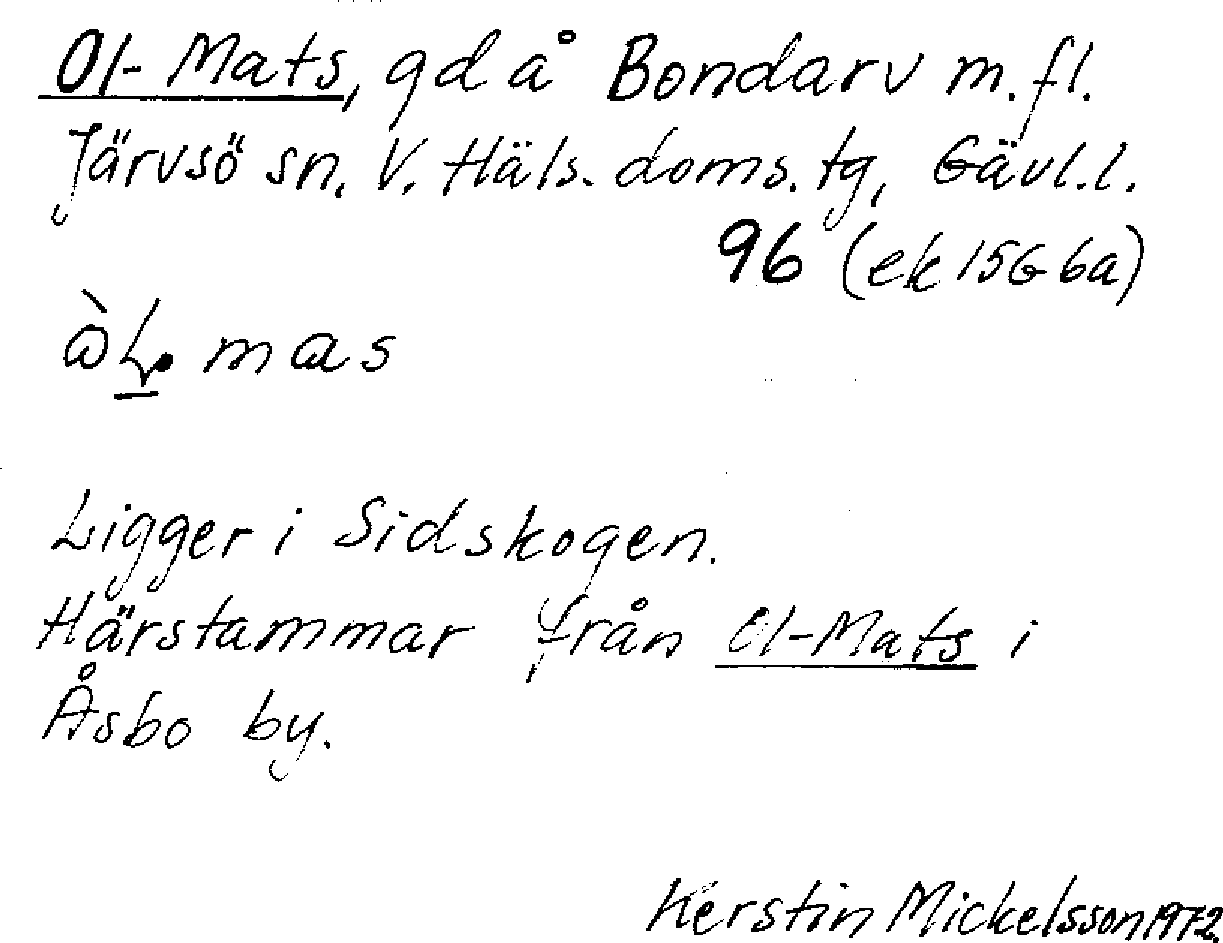 Ol-Mats, gd å Bondarv m.fl.
Järvsö sn. V. Häls. doms. tg, Gävl.l.
96 (ek 15G 6a)
mas
Ligger i Sidskogen.
Härstammar från Ol-Mats i
Åsbo by.
Kerstin Mickelsson 1972.